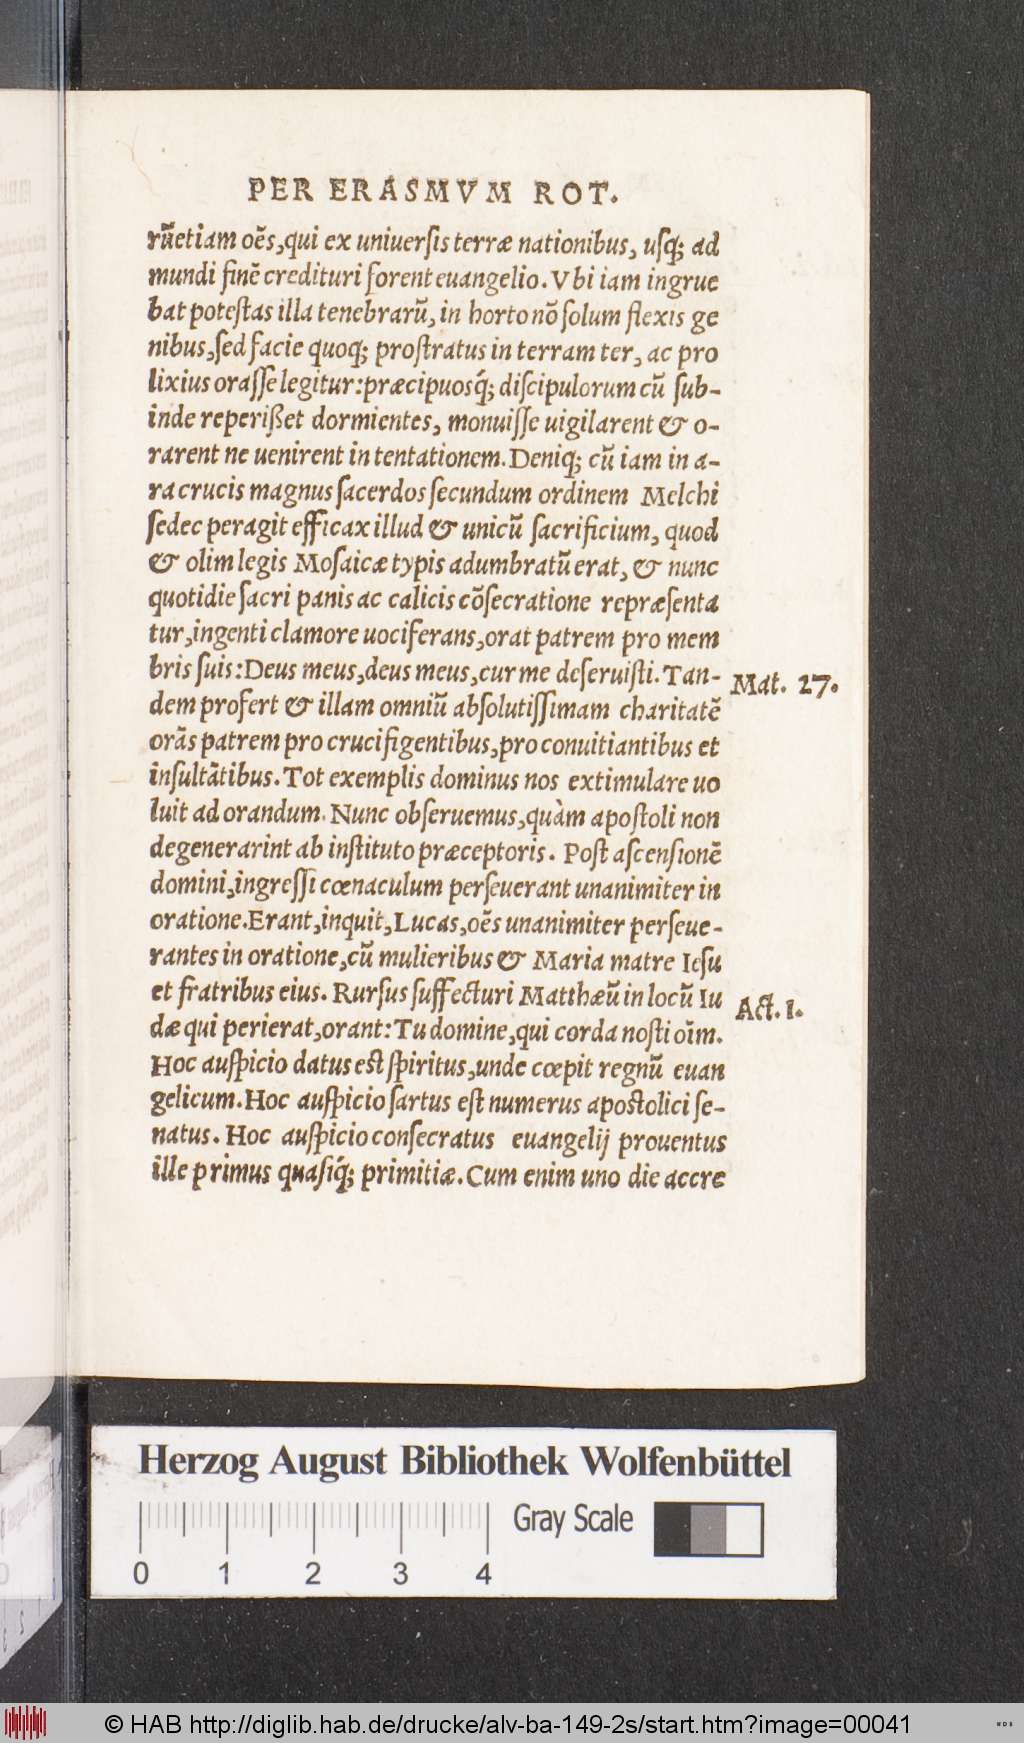 PER ERASMVM ROT.
rũetiam oẽs,qui ex uniuersis terræ nationibus, usq; ad
mundi finẽ credituri forent euangelio. Vbi iam ingrue
bat potestas illa tenebrarũ, in horto nõ solum flexis ge
nibus,sed facie quoq; prostratus in terram ter, ac pro
lixius orasse legitur:præcipuosq́; discipulorum cũ sub-
inde reperißet dormientes, monuisse uigilarent & o-
rarent ne uenirent in tentationem. Deniq; cũ iam in a-
ra crucis magnus sacerdos secundum ordinem Melchi
sedec peragit efficax illud & unicũ sacrificium, quod
& olim legis Mosaicæ typis adumbratũ erat, & nunc
quotidie sacri panis ac calicis cõsecratione repræsenta
tur,ingenti clamore uociferans,orat patrem pro mem
bris suis:Deus meus,deus meus,cur me deseruisti. Tan-
Mat. 27.
dem profert & illam omniũ absolutissimam charitatẽ
orãs patrem pro crucifigentibus,pro conuitiantibus et
insultãtibus. Tot exemplis dominus nos extimulare uo
luit ad orandum. Nunc obseruemus,quàm apostoli non
degenerarint ab instituto præceptoris. Post ascensionẽ
domini,ingressi cœnaculum perseuerant unanimiter in
oratione.Erant,inquit,Lucas,oẽs unanimiter perseue-
rantes in oratione,cũ mulieribus & Maria matre Iesu
et fratribus eius. Rursus suffecturi Matthæũ in locũ Iu
Act. 1.
dæ qui perierat,orant: Tu domine,qui corda nosti oĩm.
Hoc auspicio datus est spiritus,unde cœpit regnũ euan
gelicum. Hoc auspicio sartus est numerus apostolici se-
natus. Hoc auspicio consecratus euangelij prouentus
ille primus quasiq́; primitiæ. Cum enim uno die accre
Herzog August Bibliothek Wolfenbüttel
Gray Scale
0 1 2 3 4
© HAB http://diglib.hab.de/drucke/alv-ba-149-2s/start.htm?image=00041